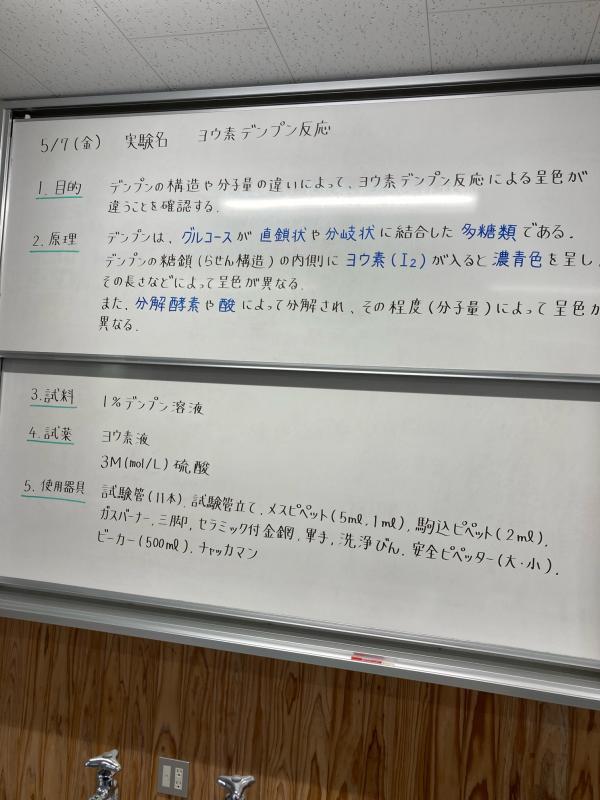 5/9(金) 実験名 ヨウ素デンプン反応
1. 目的 デンプンの構造や分子量の違いによって、ヨウ素デンプン反応による呈色が
違うことを確認する.
2. 原理 デンプンは、グルコースが直鎖状や分岐状に結合した多糖類である.
デンプンの糖鎖(らせん構造)の内側にヨウ素(I₂)が入ると濃青色を呈し、
その長さなどによって呈色が異なる.
また、分解酵素や酸によって分解され、その程度(分子量)によって呈色が
異なる.
3. 試料 1%デンプン溶液
4. 試薬 ヨウ素液
3M(mol/L)硫酸
5. 使用器具 試験管(11本), 試験管立て, メスピペット(5ml, 1ml), 駒込ピペット(2ml),
ガスバーナー, 三脚, セラミック付金網, 軍手, 洗浄びん, 安全ピペッター(大・小),
ビーカー(500ml), チャッカマン